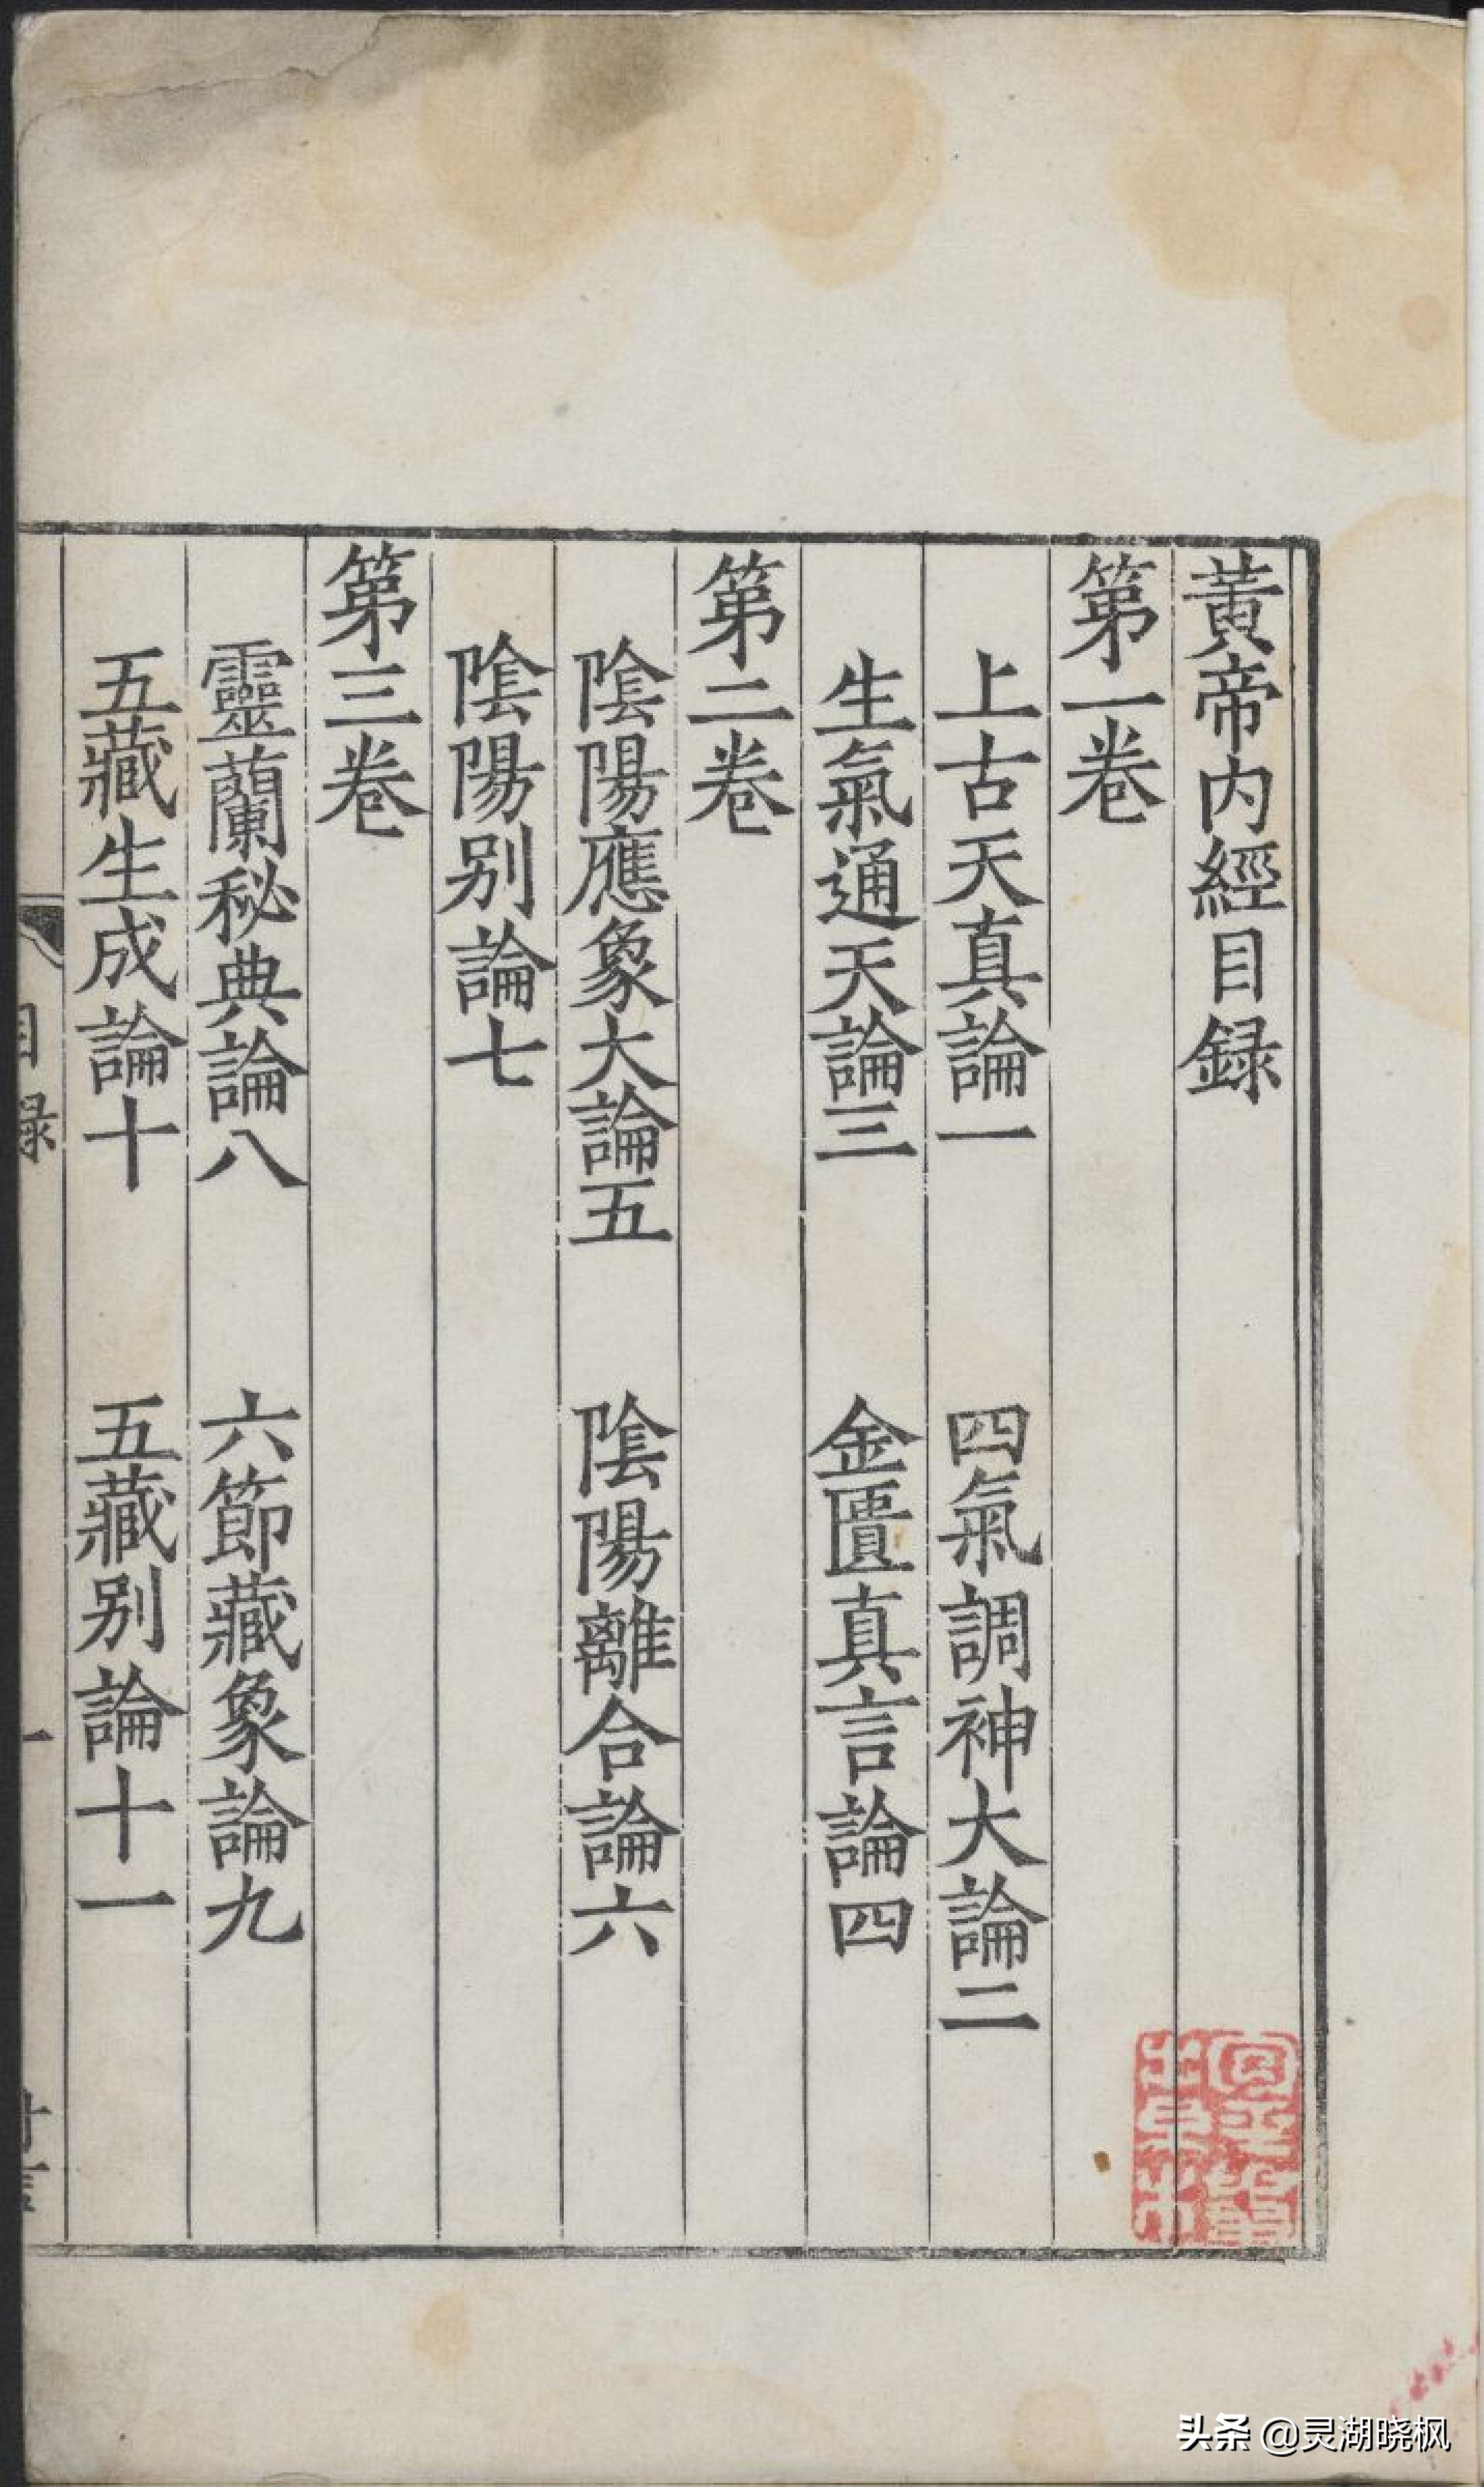 黃帝内經目録
第一卷
上古天真論一　四氣調神大論二
生氣通天論三　金匱真言論四
第二卷
隂陽應象大論五　隂陽離合論六
隂陽别論七
第三卷
靈蘭秘典論八　六節藏象論九
五藏生成論十　五藏别論十一
目録
一
头条 @灵湖晓枫